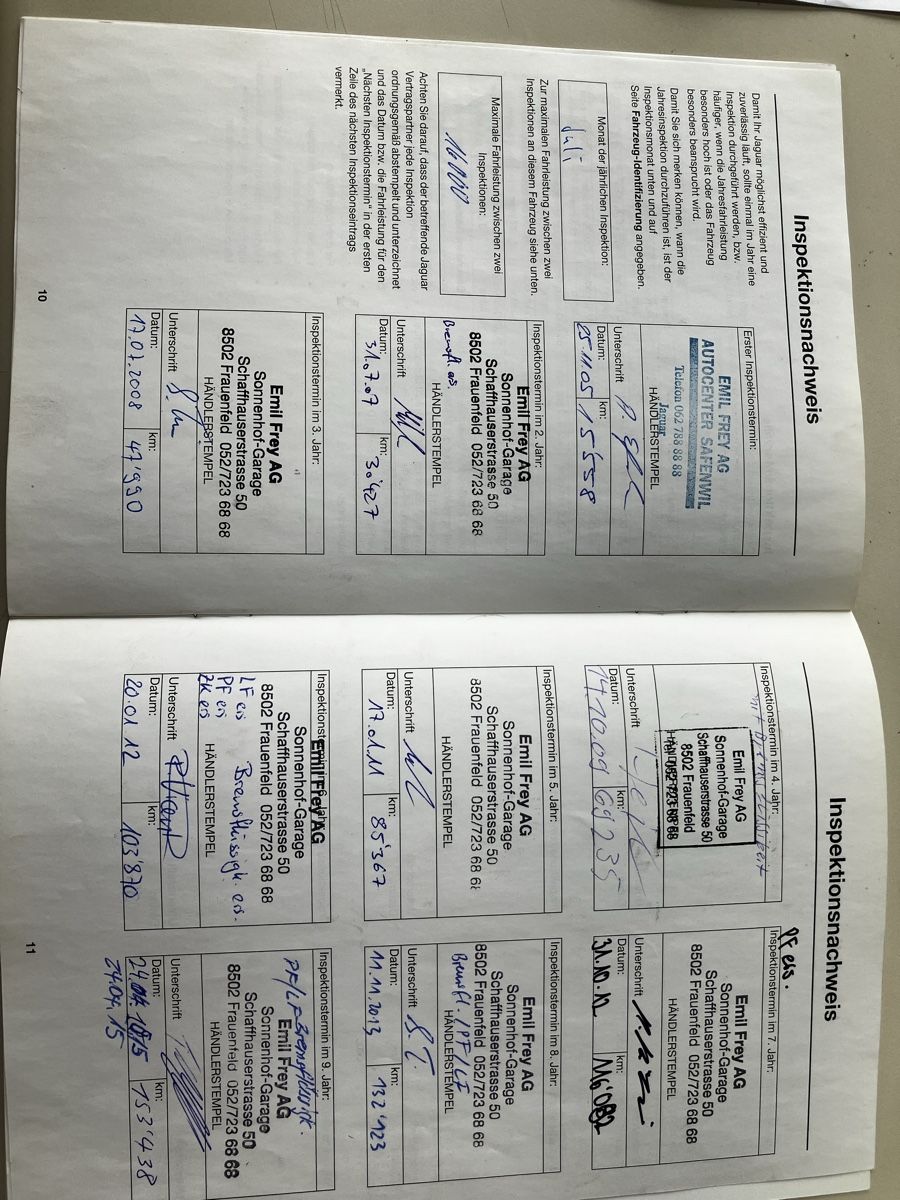 Inspektionsnachweis
Damit Ihr Jaguar möglichst effizient und
zuverlässig läuft, sollte einmal im Jahr eine
Inspektion durchgeführt werden, bzw.
häufiger, wenn die Jahresfahrleistung
besonders hoch ist oder das Fahrzeug
besonders beansprucht wird.
Damit Sie sich merken können, wann die
Jahresinspektion durchzuführen ist, ist der
Inspektionsmonat unten und auf
Seite Fahrzeug-Identifizierung angegeben.
Monat der jährlichen Inspektion:
Juli
Zur maximalen Fahrleistung zwischen zwei
Inspektionen an diesem Fahrzeug siehe unten.
Maximale Fahrleistung zwischen zwei
Inspektionen:
16000
Achten Sie darauf, dass der betreffende Jaguar
Vertragspartner jede Inspektion
ordnungsgemäß abstempelt und unterzeichnet
und das Datum bzw. die Fahrleistung für den
„Nächsten Inspektionstermin" in der ersten
Zeile des nächsten Inspektionseintrags
vermerkt.
Erster Inspektionstermin:
EMIL FREY AG
AUTOCENTER SAFENWIL
Telefon 062 788 88 88
Jaguar
HÄNDLERSTEMPEL
Unterschrift
Datum: km:
25.11.05 15'558
Inspektionstermin im 2. Jahr:
Emil Frey AG
Sonnenhof-Garage
Schaffhauserstrasse 50
8502 Frauenfeld 052/723 68 68
Bremsfl. ers.
HÄNDLERSTEMPEL
Unterschrift
Datum: km:
31.07.07 30'427
Inspektionstermin im 3. Jahr:
Emil Frey AG
Sonnenhof-Garage
Schaffhauserstrasse 50
8502 Frauenfeld 052/723 68 68
HÄNDLERSTEMPEL
Unterschrift
Datum: km:
17.07.2008 49'990
10
Inspektionsnachweis
Inspektionstermin im 4. Jahr:
mit Bremsflüssigkeit
Emil Frey AG
Sonnenhof-Garage
Schaffhauserstrasse 50
8502 Frauenfeld
Tel. 052 723 68 68
HÄNDLERSTEMPEL
Unterschrift
Datum: km:
14.10.09 69235
Inspektionstermin im 5. Jahr:
Emil Frey AG
Sonnenhof-Garage
Schaffhauserstrasse 50
8502 Frauenfeld 052/723 68 68
HÄNDLERSTEMPEL
Unterschrift
Datum: km:
17.01.11 85'367
Emil Frey AG
Sonnenhof-Garage
Schaffhauserstrasse 50
8502 Frauenfeld 052/723 68 68
LF ers
PF ers Bremsflüssigk. ers.
ZK ers HÄNDLERSTEMPEL
Unterschrift
Datum: km:
20.01.12 103'870
PF ers.
Inspektionstermin im 7. Jahr:
Emil Frey AG
Sonnenhof-Garage
Schaffhauserstrasse 50
8502 Frauenfeld 052/723 68 68
HÄNDLERSTEMPEL
Unterschrift
Datum: km:
31.10.12
Inspektionstermin im 8. Jahr:
Emil Frey AG
Sonnenhof-Garage
Schaffhauserstrasse 50
8502 Frauenfeld 052/723 68 68
Bremsfl. / PF / LF
HÄNDLERSTEMPEL
Unterschrift
Datum: km:
11.11.2013 132'123
Inspektionstermin im 9. Jahr:
PF/LF Bremsflüssigk.
Emil Frey AG
Sonnenhof-Garage
Schaffhauserstrasse 50
8502 Frauenfeld 052/723 68 68
HÄNDLERSTEMPEL
Unterschrift
Datum: km:
153'438
24.04.15
11